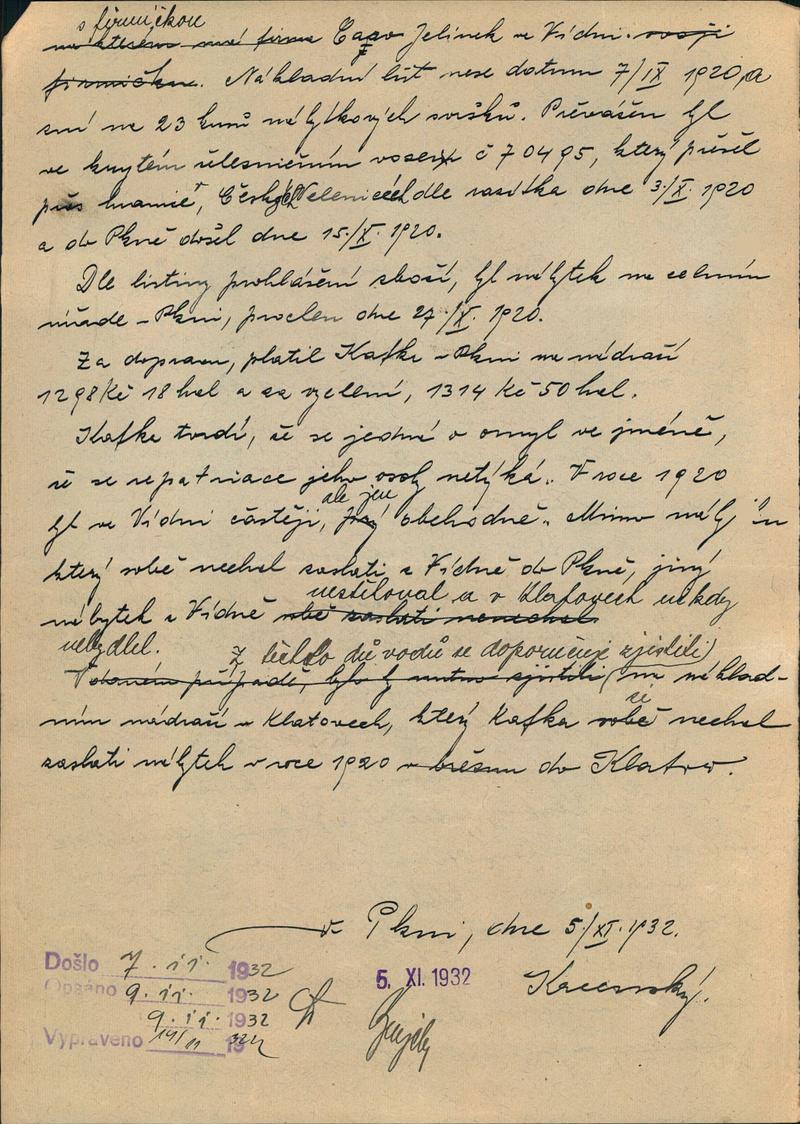 s firmičkou
na kterém má firma Caro Jelinek ve Vídni. svoji
firmičku. Nákladní list nese datum 7/IX 1920, a
zní na 23 kusů nábytkových svršků. Převážen byl
ve krytém železničním voze č 70495, který přešel
přes hranice, České Velenice dle razítka dne 3./X. 1920
a do Plzně došel dne 15./X. 1920.
Dle listiny prohlášení zboží, byl nábytek na celním
úřadě v Plzni, proclen dne 27./X. 1920.
Za dopravu, platil Kafka v Plzni na nádraží
1298 Kč 18 hal a za vyclení, 1314 Kč 50 hal.
Kafka tvrdí, že se jedná o omyl ve jméně,
že se repatriace jeho osoby netýká. V roce 1920
ale jen
byl ve Vídni častěji, prý obchodně. Mimo nábytku
který sobě nechal zaslati z Vídně do Plzně, jiný
nestěhoval a v Klatovech nikdy
nábytek z Vídně sobě zaslati nenechal
nebydlel. Z těchto důvodů se doporučuje zjistiti,
V daném případě, bylo by nutno zjistiti, na náklad-
si
ním nádraží v Klatovech, který Kafka sobě nechal
zaslati nábytek v roce 1920 v březnu do Klatov.
v Plzni, dne 5./XI. 1932.
Došlo 7. 11. 1932
5. XI. 1932
Opsáno 9. 11. 1932
9. 11. 1932
Vypraveno 14/11 1932